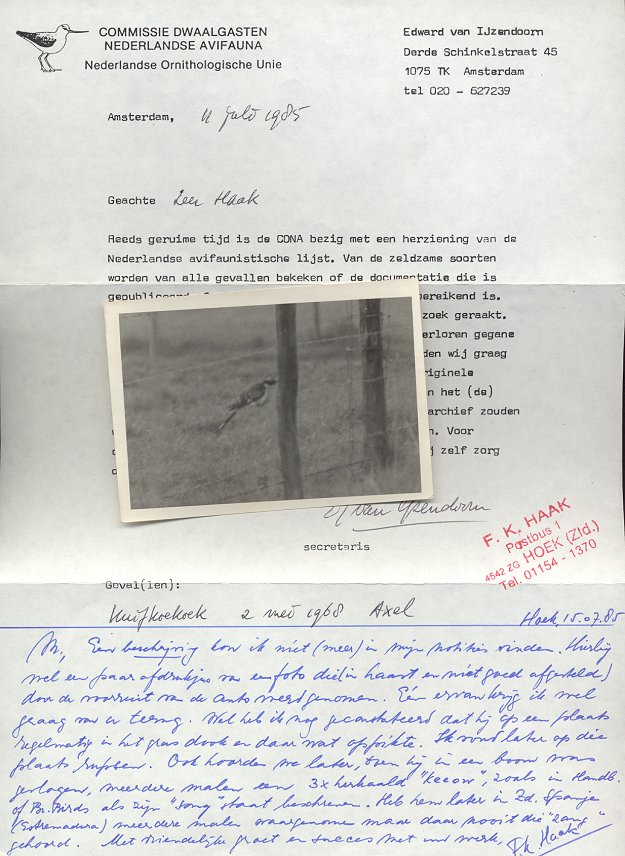 COMMISSIE DWAALGASTEN
NEDERLANDSE AVIFAUNA
Nederlandse Ornithologische Unie
Edward van IJzendoorn
Derde Schinkelstraat 45
1075 TK Amsterdam
tel 020 - 627239
Amsterdam, 11 juli 1985
Geachte Heer Haak
Reeds geruime tijd is de CDNA bezig met een herziening van de
Nederlandse avifaunistische lijst. Van de zeldzame soorten
worden van alle gevallen bekeken of de documentatie die is
gepubliceerd, bereikend is.
zoek geraakt.
erloren gegane
den wij graag
riginele
n het (de)
archief zouden
n. Voor
j zelf zorg
E van IJzendoorn
secretaris
F. K. HAAK
Postbus 1
4542 ZG HOEK (Zld.)
Tel. 01154 - 1370
Geval(len):
Kuifkoekoek 2 mei 1968 Axel
Hoek, 15.07.85
M., Een beschrijving kon ik niet (meer) in mijn notities vinden. Hierbij
wel een paar afdrukjes van een foto die (in haast en niet goed afgesteld)
door de voorruit van de auto werd genomen. Eén ervan krijg ik wel
graag van u terug. Wel heb ik nog geconstateerd dat hij op een plaats
regelmatig in het gras dook en daar wat oppikte. Ik vond later op die
plaats rupsen. Ook hoorden we later, toen hij in een boom was
gevlogen, meerdere malen een 3x herhaald "keeow", zoals in Handb.
of Br. Birds als zijn "song" staat beschreven. Heb hem later in Zd. Spanje
(Extremadura) meerdere malen waargenomen maar daar nooit die "zang"
gehoord. Met vriendelijke groet en succes met uw werk, F.K. Haak